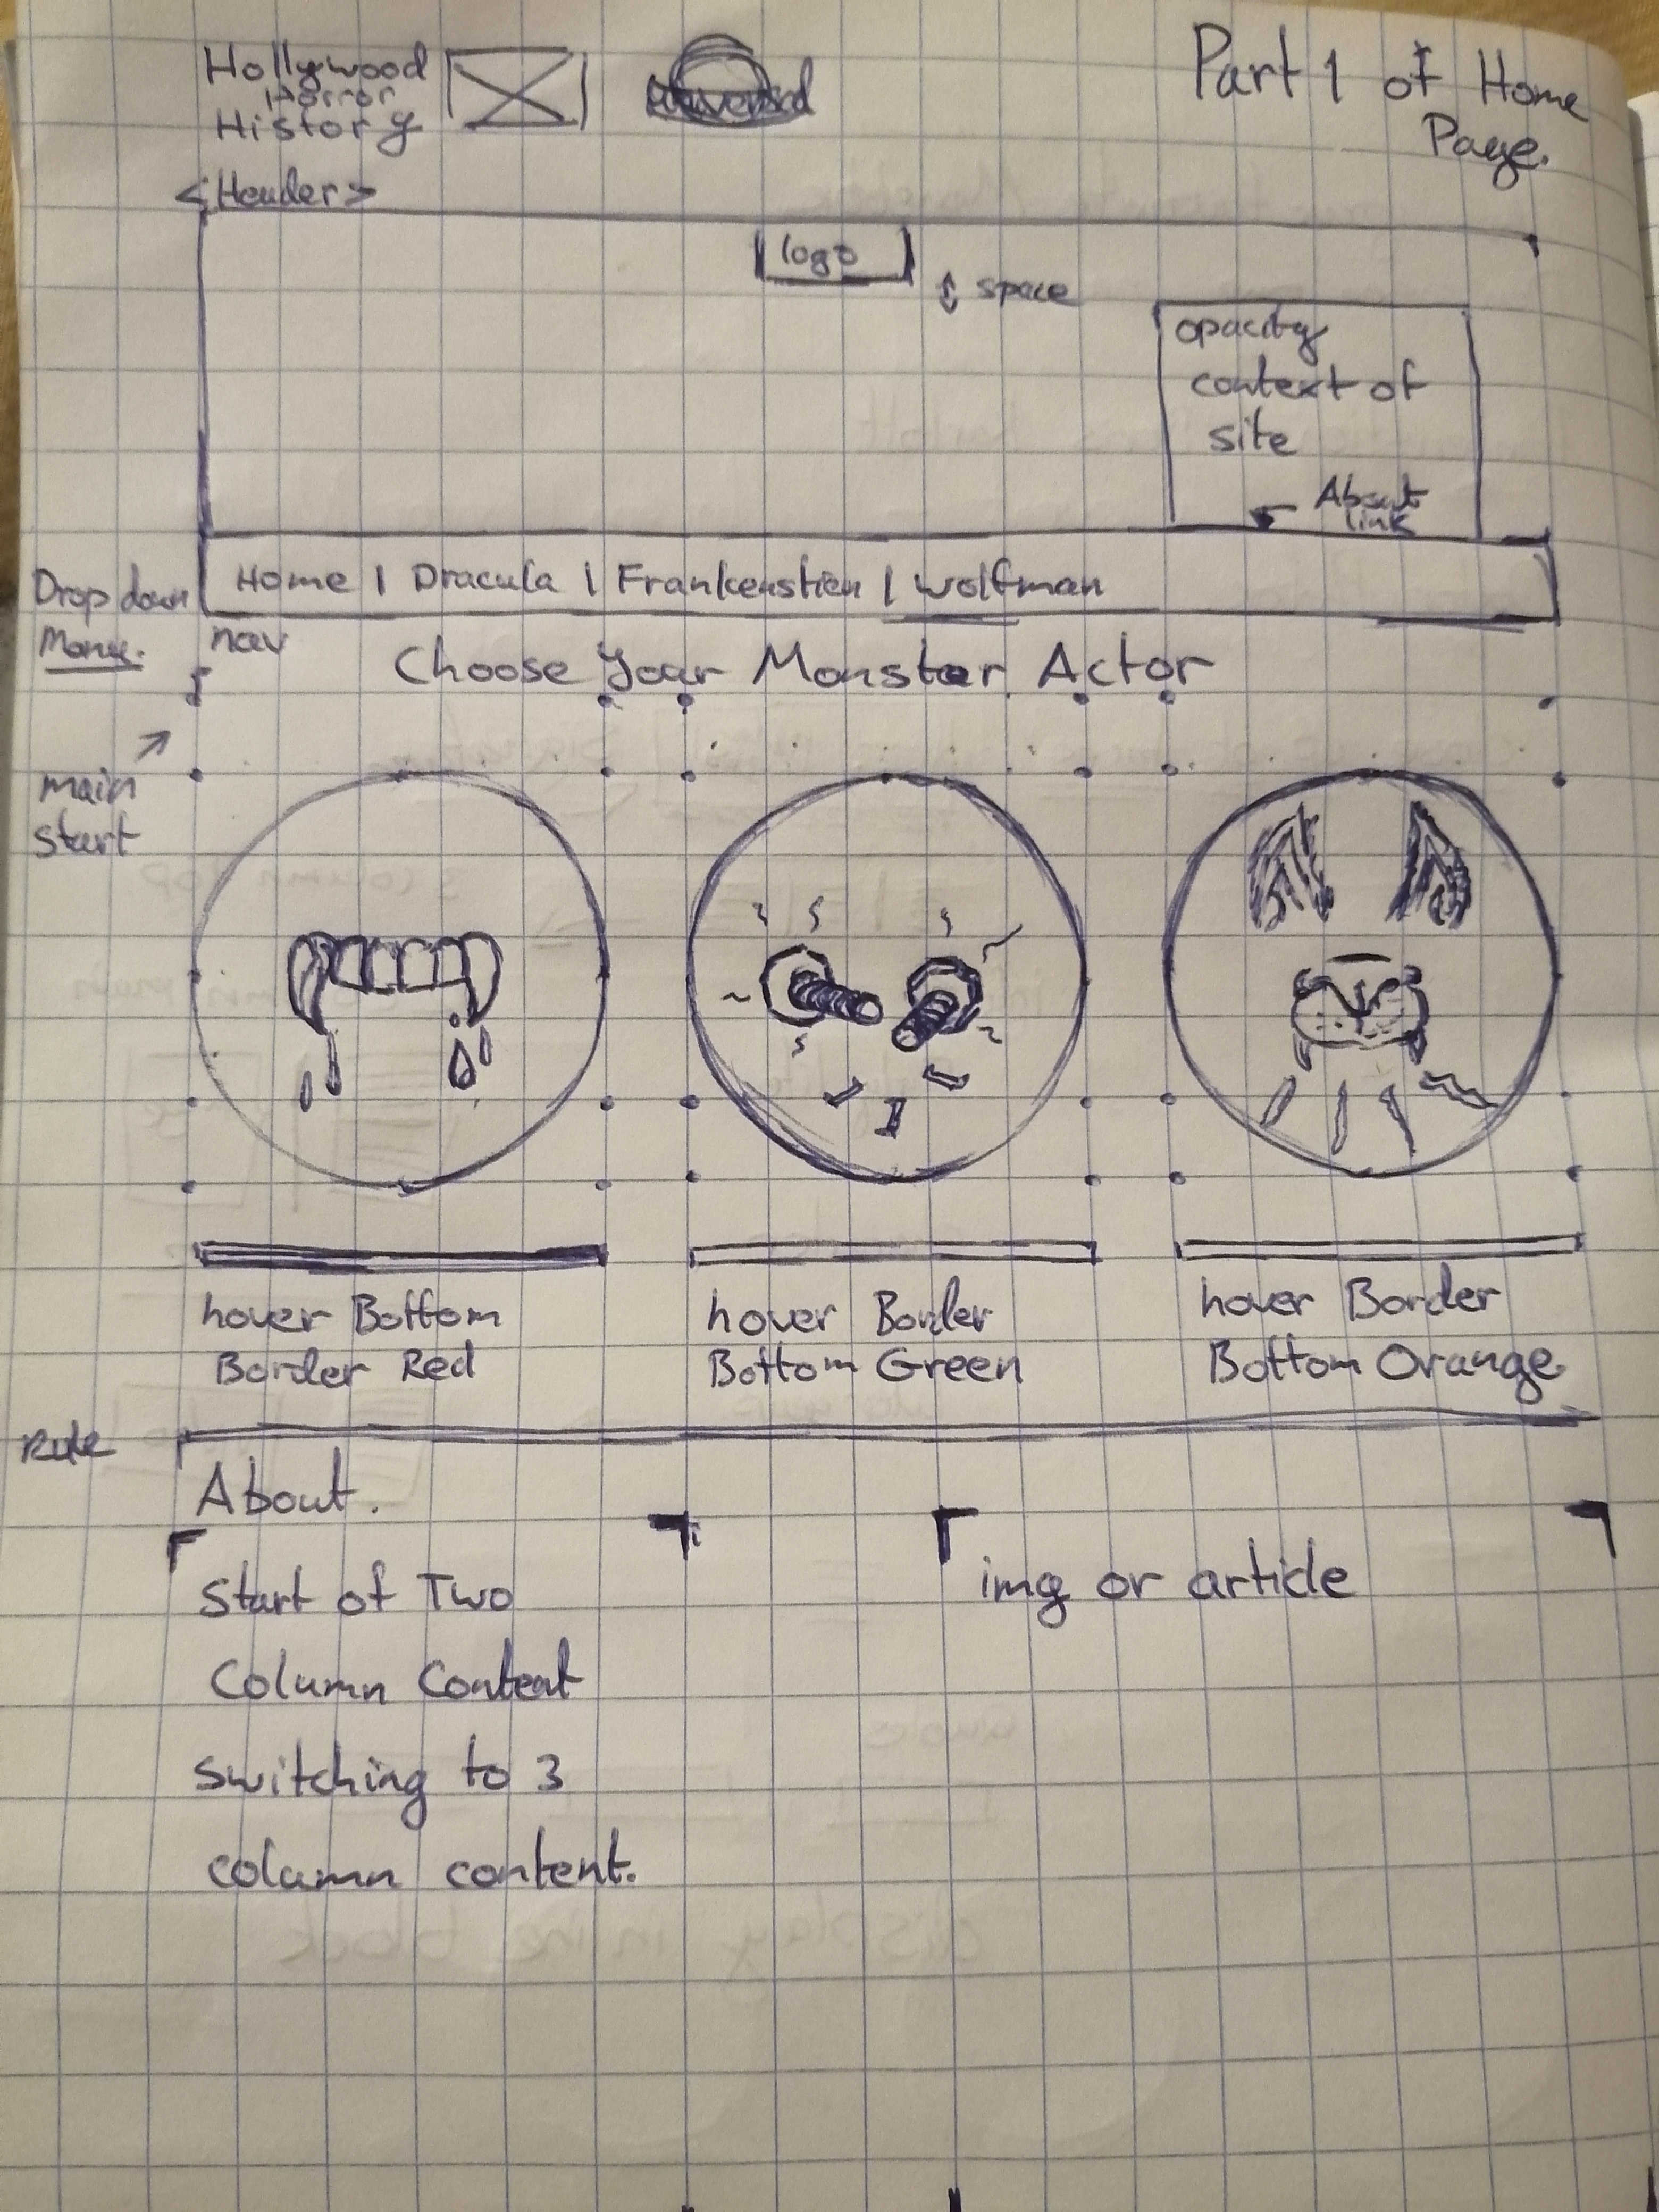 Hollywood
Horror
History
Part 1 of Home
Page.
<Header>
logo
space
opacity
context of
site
About
link
Drop down
Menu.
Home | Dracula | Frankenstien | Wolfman
nav
Choose Your Monster Actor
main
start
hover Bottom
Border Red
hover Border
Bottom Green
hover Border
Bottom Orange
Rule
About.
Start of Two
Column Content
switching to 3
column content.
img or article